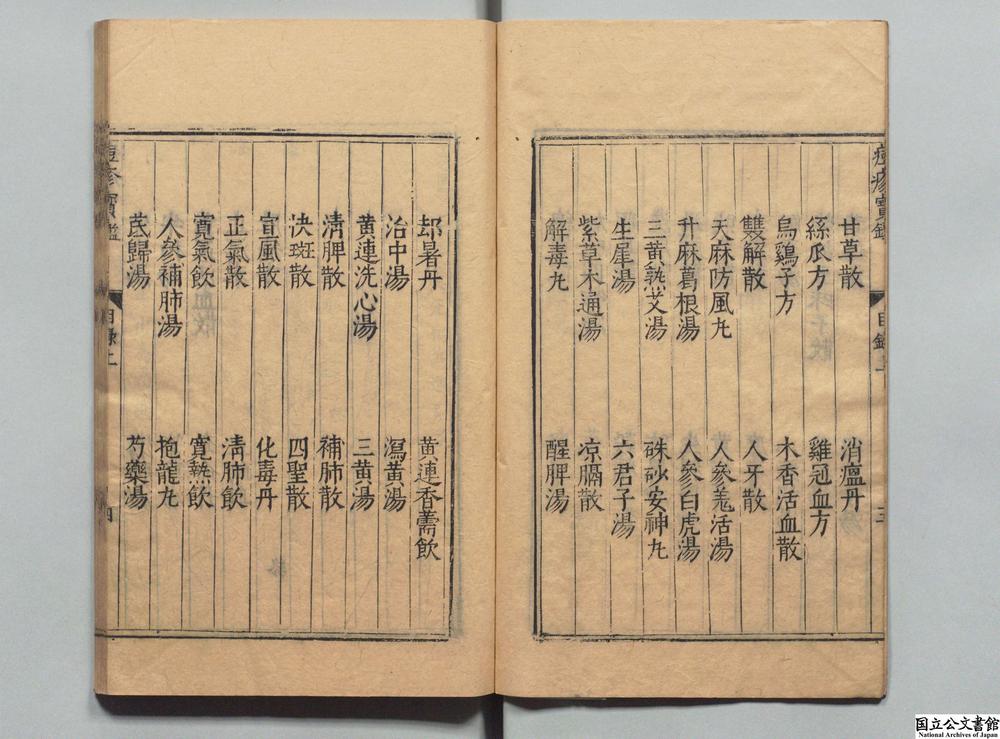 甘草散　消瘟丹
絲瓜方　雞冠血方
烏鷄子方　木香活血散
雙解散　人牙散
天麻防風丸　人參羗活湯
升麻葛根湯　人參白虎湯
三黃熟艾湯　硃砂安神丸
生犀湯　六君子湯
紫草木通湯　凉膈散
解毒丸　醒脾湯
却暑丹　黃連香薷飲
治中湯　瀉黃湯
黃連洗心湯　三黃湯
淸脾散　補肺散
決斑散　四聖散
宣風散　化毒丹
正氣散　淸肺飲
寬氣飲　寬熱飲
人參補肺湯　抱龍丸
芪歸湯　芍藥湯
痘疹寶鑑　目錄上　四
国立公文書館
National Archives of Japan